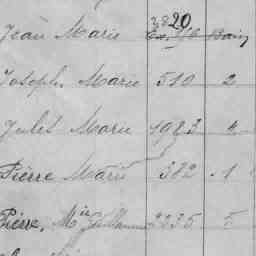 3820
Jean Marie
Joseph Marie 510 2
Jules Marie 1983 4
Pierre Marie 382 1
Pierre, Mie Guillaume 2235 5